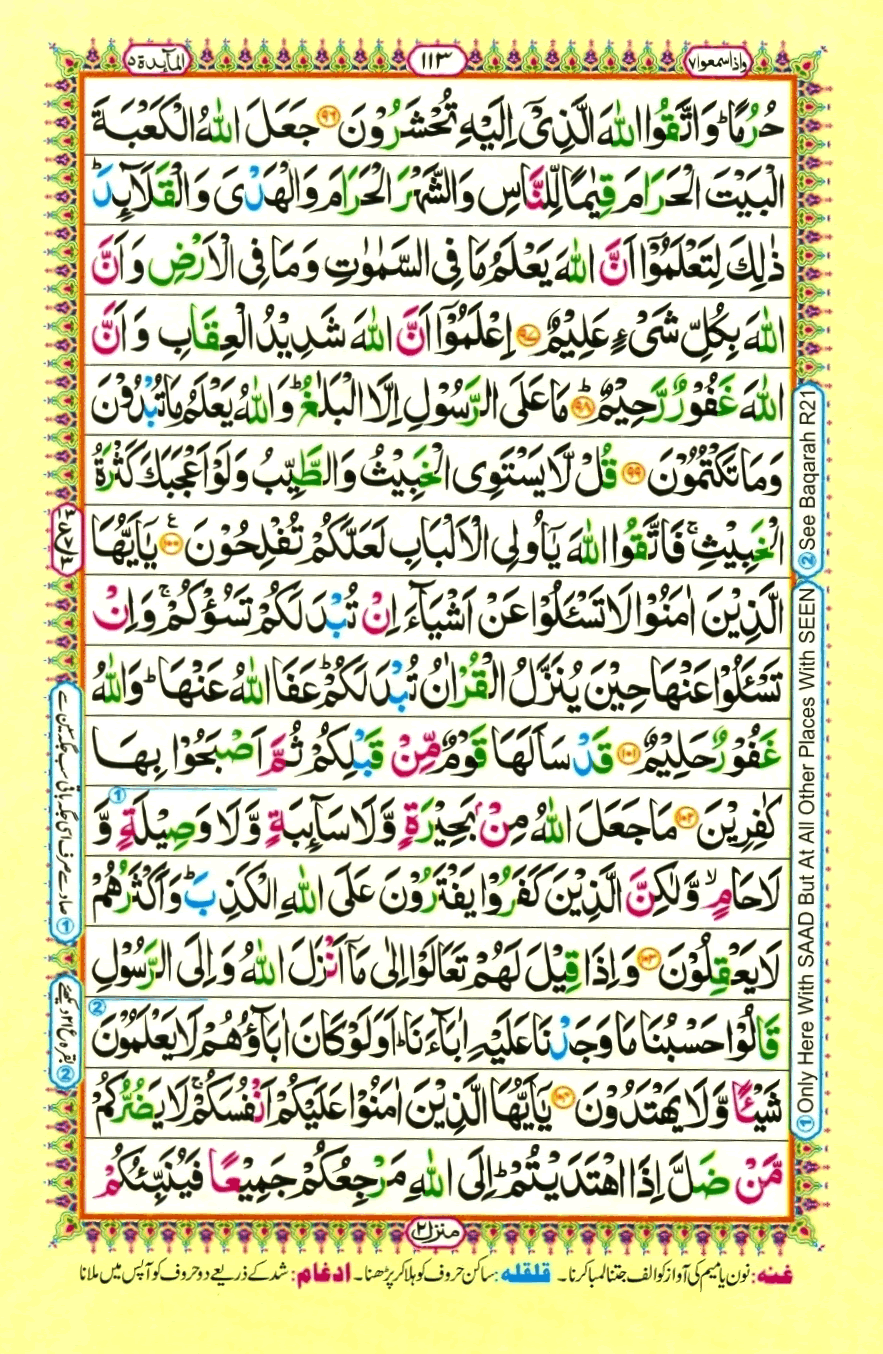 واذا سمعوا ٧
١١٣
المآىِٕدة ٥
حُرُمًا ؕ وَ اتَّقُوا اللّٰهَ الَّذِیْۤ اِلَیْهِ تُحْشَرُوْنَ ﴿۹۶﴾ جَعَلَ اللّٰهُ الْكَعْبَةَ
الْبَیْتَ الْحَرَامَ قِیٰمًا لِّلنَّاسِ وَ الشَّهْرَ الْحَرَامَ وَ الْهَدْیَ وَ الْقَلَآىِٕدَ ؕ
ذٰلِكَ لِتَعْلَمُوْۤا اَنَّ اللّٰهَ یَعْلَمُ مَا فِی السَّمٰوٰتِ وَ مَا فِی الْاَرْضِ وَ اَنَّ
اللّٰهَ بِكُلِّ شَیْءٍ عَلِیْمٌ ﴿۹۷﴾ اِعْلَمُوْۤا اَنَّ اللّٰهَ شَدِیْدُ الْعِقَابِ وَ اَنَّ
اللّٰهَ غَفُوْرٌ رَّحِیْمٌ ﴿۹۸﴾ؕ مَا عَلَی الرَّسُوْلِ اِلَّا الْبَلٰغُ ؕ وَ اللّٰهُ یَعْلَمُ مَا تُبْدُوْنَ
وَ مَا تَكْتُمُوْنَ ﴿۹۹﴾ قُلْ لَّا یَسْتَوِی الْخَبِیْثُ وَ الطَّیِّبُ وَ لَوْ اَعْجَبَكَ كَثْرَةُ
الْخَبِیْثِ ۚ فَاتَّقُوا اللّٰهَ یٰۤاُولِی الْاَلْبَابِ لَعَلَّكُمْ تُفْلِحُوْنَ ﴿۱۰۰﴾ ع یٰۤاَیُّهَا
الَّذِیْنَ اٰمَنُوْا لَا تَسْـَٔلُوْا عَنْ اَشْیَآءَ اِنْ تُبْدَ لَكُمْ تَسُؤْكُمْ ۚ وَ اِنْ
تَسْـَٔلُوْا عَنْهَا حِیْنَ یُنَزَّلُ الْقُرْاٰنُ تُبْدَ لَكُمْ ؕ عَفَا اللّٰهُ عَنْهَا ؕ وَ اللّٰهُ
غَفُوْرٌ حَلِیْمٌ ﴿۱۰۱﴾ قَدْ سَاَلَهَا قَوْمٌ مِّنْ قَبْلِكُمْ ثُمَّ اَصْبَحُوْا بِهَا
كٰفِرِیْنَ ﴿۱۰۲﴾ مَا جَعَلَ اللّٰهُ مِنْۢ بَحِیْرَةٍ وَّ لَا سَآىِٕبَةٍ وَّ لَا وَصِیْلَةٍ وَّ
لَا حَامٍ ۙ وَّ لٰكِنَّ الَّذِیْنَ كَفَرُوْا یَفْتَرُوْنَ عَلَی اللّٰهِ الْكَذِبَ ؕ وَ اَكْثَرُهُمْ
لَا یَعْقِلُوْنَ ﴿۱۰۳﴾ وَ اِذَا قِیْلَ لَهُمْ تَعَالَوْا اِلٰی مَاۤ اَنْزَلَ اللّٰهُ وَ اِلَی الرَّسُوْلِ
قَالُوْا حَسْبُنَا مَا وَجَدْنَا عَلَیْهِ اٰبَآءَنَا ؕ اَوَ لَوْ كَانَ اٰبَآؤُهُمْ لَا یَعْلَمُوْنَ
شَیْـًٔا وَّ لَا یَهْتَدُوْنَ ﴿۱۰۴﴾ یٰۤاَیُّهَا الَّذِیْنَ اٰمَنُوْا عَلَیْكُمْ اَنْفُسَكُمْ ۚ لَا یَضُرُّكُمْ
مَّنْ ضَلَّ اِذَا اهْتَدَیْتُمْ ؕ اِلَی اللّٰهِ مَرْجِعُكُمْ جَمِیْعًا فَیُنَبِّئُكُمْ
منزل ٢
غنہ: نون یا میم کی آواز کو الف جتنا لمبا کرنا۔ قلقلہ: ساکن حروف کو ہلا کر پڑھنا۔ ادغام: شد کے ذریعے دو حروف کو آپس میں ملانا
① Only Here With SAAD But At All Other Places With SEEN
② See Baqarah R21
① صاد سے صرف اسی جگہ باقی سب جگہ سین سے
② بقرہ ع ۲۱ دیکھئے